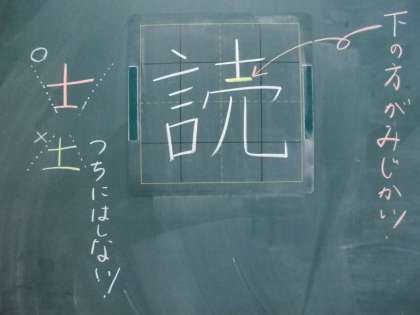 下の方がみじかい!
読
○
士
×
土
つちにはしない!